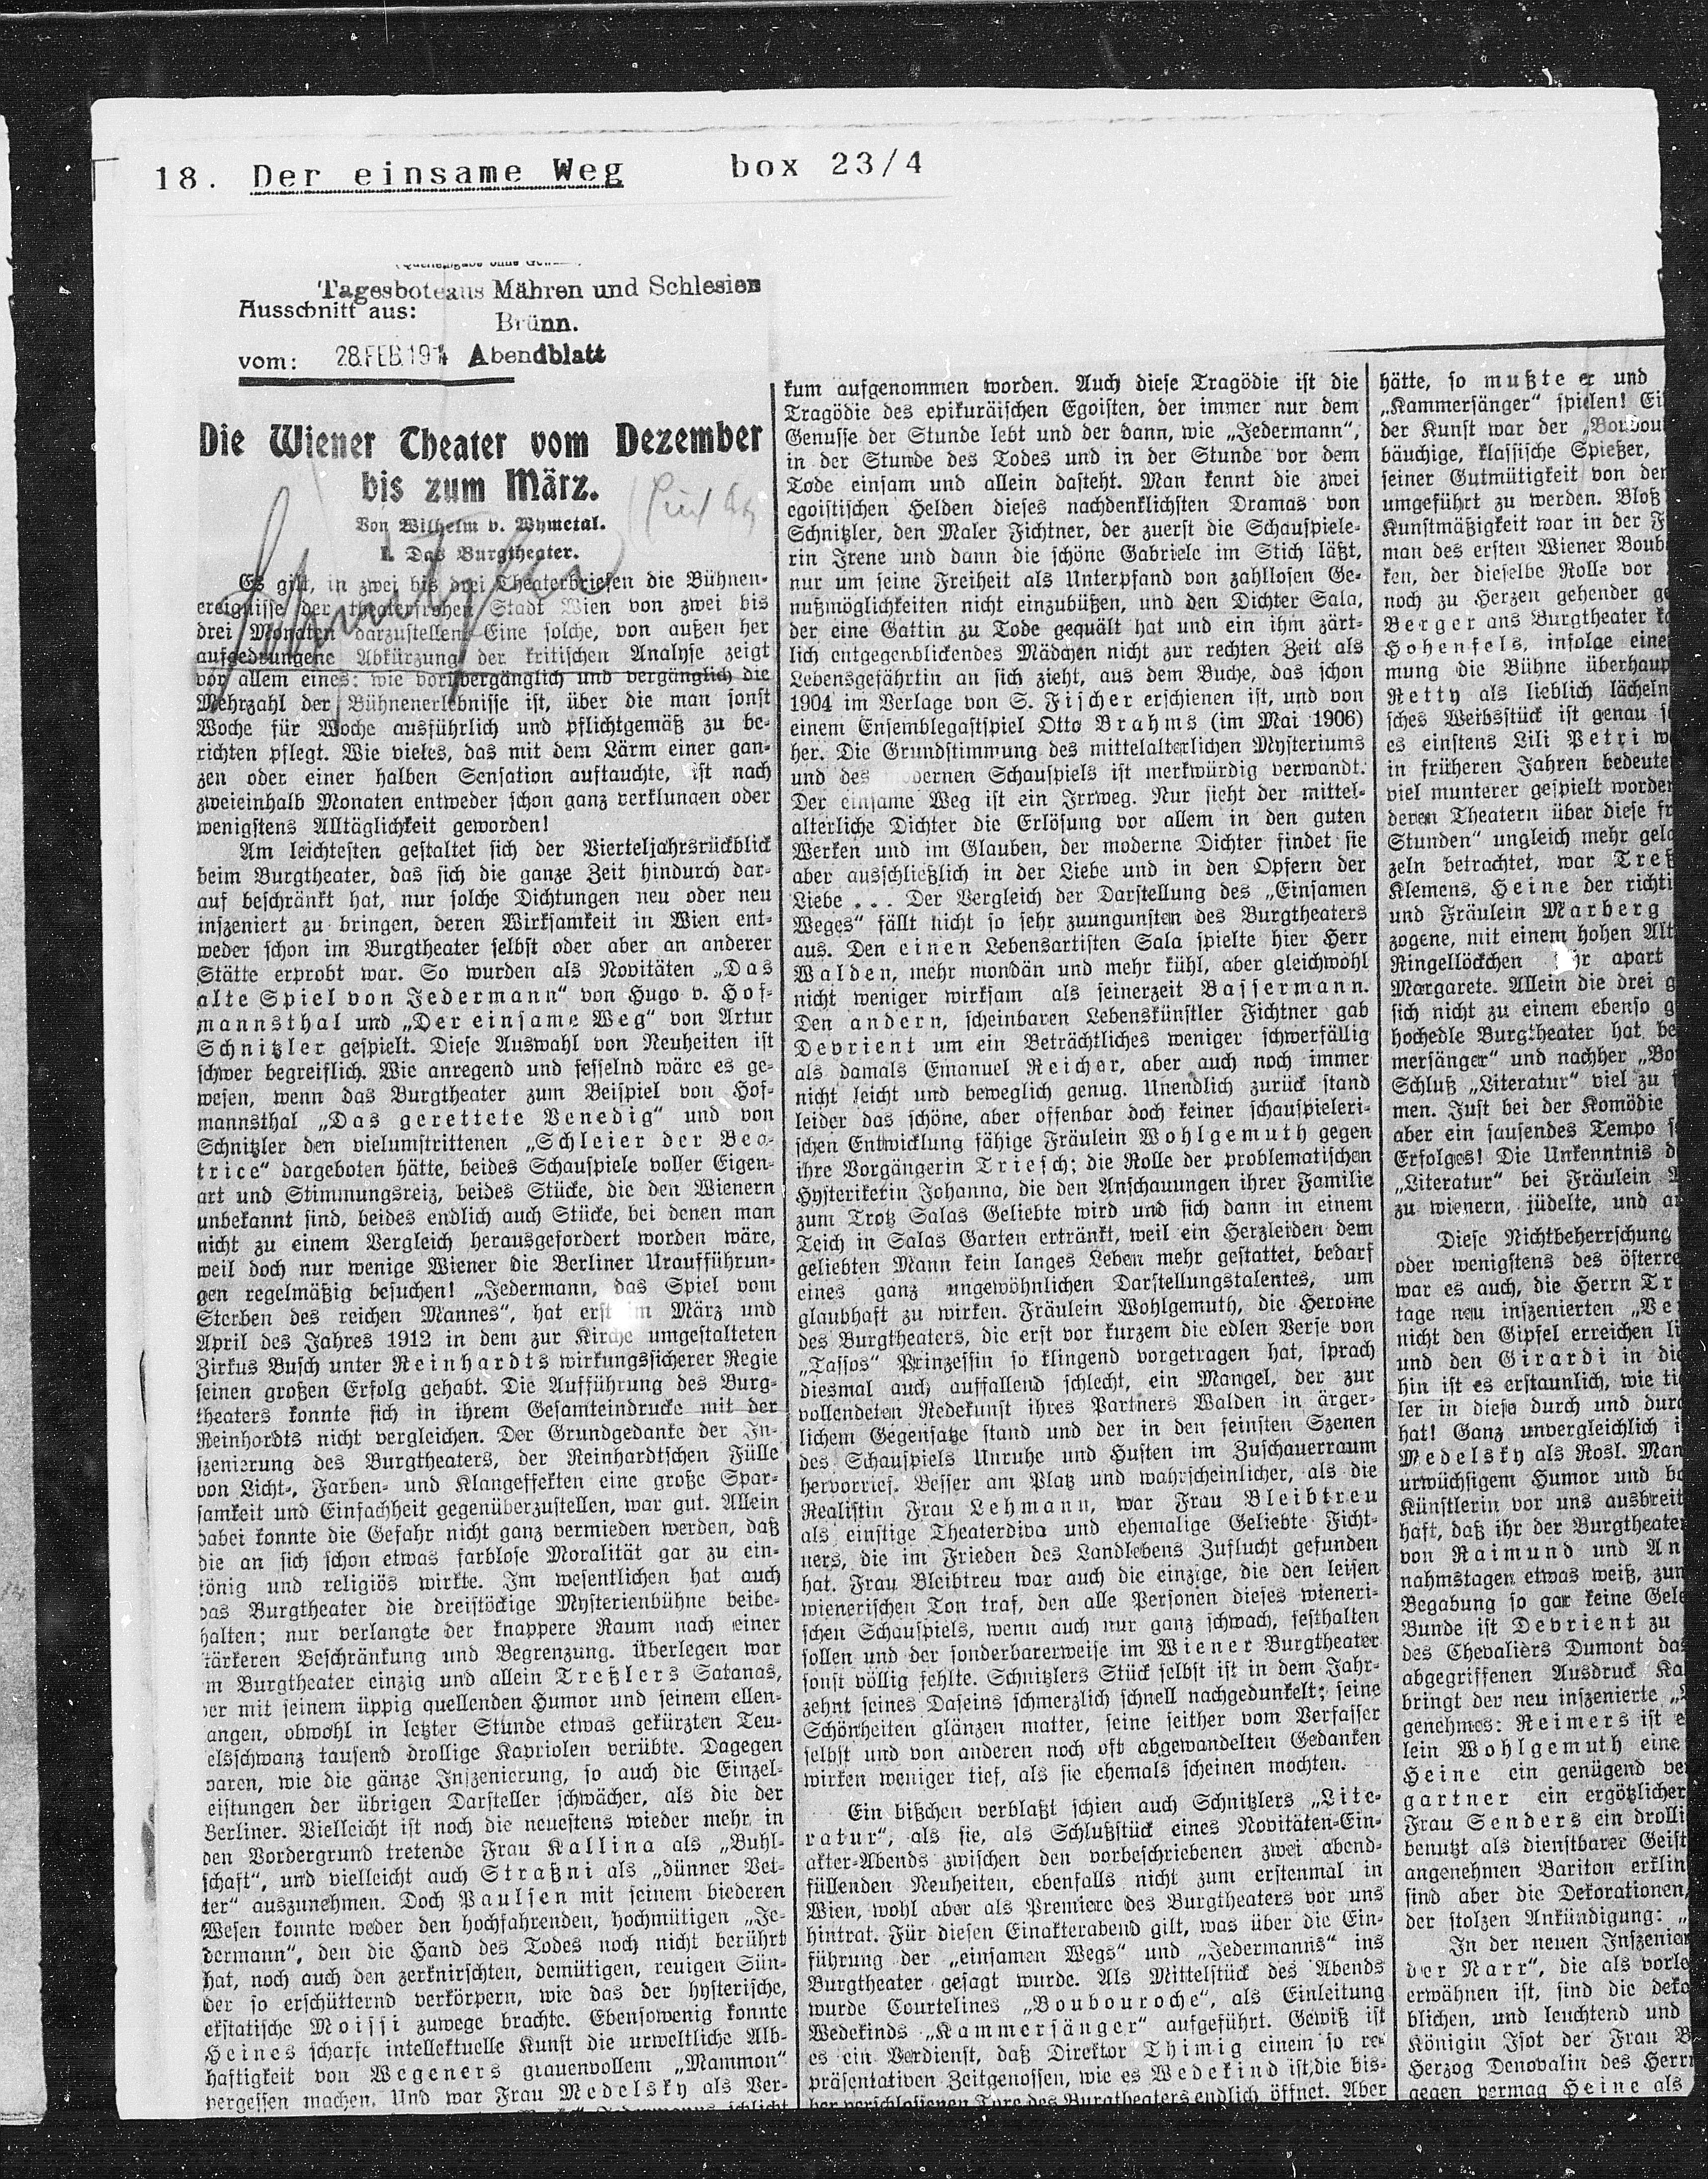 18. Der einsame Weg box 23/4
Tagesbote aus Mähren und Schlesien
Ausschnitt aus:
Brünn.
vom: 28. FEB. 1914 Abendblatt
Die Wiener Theater vom Dezember
bis zum März.
Von Wilhelm v. Wymetal.
I. Das Burgtheater.
Schnitzler
Es gilt, in zwei bis drei Theaterbriefen die Bühnen-
ereignisse der theaterfrohen Stadt Wien von zwei bis
drei Monaten darzustellen. Eine solche, von außen her
aufgedrungene Abkürzung der kritischen Analyse zeigt
vor allem eines: wie vorübergänglich und vergänglich die
Mehrzahl der Bühnenerlebnisse ist, über die man sonst
Woche für Woche ausführlich und pflichtgemäß zu be-
richten pflegt. Wie vieles, das mit dem Lärm einer gan-
zen oder einer halben Sensation auftauchte, ist nach
zweieinhalb Monaten entweder schon ganz verklungen oder
wenigstens Alltäglichkeit geworden!
Am leichtesten gestaltet sich der Vierteljahrsrückblick
beim Burgtheater, das sich die ganze Zeit hindurch dar-
auf beschränkt hat, nur solche Dichtungen neu oder neu
inszeniert zu bringen, deren Wirksamkeit in Wien ent-
weder schon im Burgtheater selbst oder aber an anderer
Stätte erprobt war. So wurden als Novitäten „Das
alte Spiel von Jedermann“ von Hugo v. Hof-
mannsthal und „Der einsame Weg“ von Artur
Schnitzler gespielt. Diese Auswahl von Neuheiten ist
schwer begreiflich. Wie anregend und fesselnd wäre es ge-
wesen, wenn das Burgtheater zum Beispiel von Hof-
mannsthal „Das gerettete Venedig“ und von
Schnitzler den vielumstrittenen „Schleier der Bea-
trice“ dargeboten hätte, beides Schauspiele voller Eigen-
art und Stimmungsreiz, beides Stücke, die den Wienern
unbekannt sind, beides endlich auch Stücke, bei denen man
nicht zu einem Vergleich herausgefordert worden wäre,
weil doch nur wenige Wiener die Berliner Uraufführun-
gen regelmäßig besuchen! „Jedermann, das Spiel vom
Sterben des reichen Mannes“, hat erst im März und
April des Jahres 1912 in dem zur Kirche umgestalteten
Zirkus Busch unter Reinhardts wirkungssicherer Regie
seinen großen Erfolg gehabt. Die Aufführung des Burg-
theaters konnte sich in ihrem Gesamteindrucke mit der
Reinhardts nicht vergleichen. Der Grundgedanke der In-
szenierung des Burgtheaters, der Reinhardtschen Fülle
von Licht-, Farben- und Klangeffekten eine große Spar-
samkeit und Einfachheit gegenüberzustellen, war gut. Allein
dabei konnte die Gefahr nicht ganz vermieden werden, daß
die an sich schon etwas farblose Moralität gar zu ein-
tönig und religiös wirkte. Im wesentlichen hat auch
das Burgtheater die dreistöckige Mysterienbühne beibe-
halten; nur verlangte der knappere Raum nach einer
stärkeren Beschränkung und Begrenzung. Überlegen war
im Burgtheater einzig und allein Treßlers Satanas,
der mit seinem üppig quellenden Humor und seinem ellen-
langen, obwohl in letzter Stunde etwas gekürzten Teu-
elsschwanz tausend drollige Kapriolen verübte. Dagegen
waren, wie die gänze Inszenierung, so auch die Einzel-
eistungen der übrigen Darsteller schwächer, als die der
Berliner. Vielleicht ist noch die neuestens wieder mehr in
den Vordergrund tretende Frau Kallina als „Buhl-
schaft“, und vielleicht auch Straßni als „dünner Vet-
ter“ auszunehmen. Doch Paulsen mit seinem biederen
Wesen konnte weder den hochfahrenden, hochmütigen „Je-
dermann“, den die Hand des Todes noch nicht berührt
hat, noch auch den zerknirschten, demütigen, reuigen Sün-
der so erschütternd verkörpern, wie das der hysterische,
ekstatische Moissi zuwege brachte. Ebensowenig konnte
Heines scharfe intellektuelle Kunst die urweltliche Alb-
haftigkeit von Wegeners grauenvollem „Mammon“
vergessen machen. Und war Frau Medelsky als Ver-
kum aufgenommen worden. Auch diese Tragödie ist die
Tragödie des epikuräischen Egoisten, der immer nur dem
Genusse der Stunde lebt und der dann, wie „Jedermann“,
in der Stunde des Todes und in der Stunde vor dem
Tode einsam und allein dasteht. Man kennt die zwei
egoistischen Helden dieses nachdenklichsten Dramas von
Schnitzler, den Maler Fichtner, der zuerst die Schauspiele-
rin Irene und dann die schöne Gabriele im Stich läßt,
nur um seine Freiheit als Unterpfand von zahllosen Ge-
nußmöglichkeiten nicht einzubüßen, und den Dichter Sala,
der eine Gattin zu Tode gequält hat und ein ihm zärt-
lich entgegenblickendes Mädchen nicht zur rechten Zeit als
Lebensgefährtin an sich zieht, aus dem Buche, das schon
1904 im Verlage von S. Fischer erschienen ist, und von
einem Ensemblegastspiel Otto Brahms (im Mai 1906)
her. Die Grundstimmung des mittelalterlichen Mysteriums
und des modernen Schauspiels ist merkwürdig verwandt.
Der einsame Weg ist ein Irrweg. Nur sieht der mittel-
alterliche Dichter die Erlösung vor allem in den guten
Werken und im Glauben, der moderne Dichter findet sie
aber ausschließlich in der Liebe und in den Opfern der
Liebe ... Der Vergleich der Darstellung des „Einsamen
Weges“ fällt nicht so sehr zuungunsten des Burgtheaters
aus. Den einen Lebensartisten Sala spielte hier Herr
Walden, mehr mondän und mehr kühl, aber gleichwohl
nicht weniger wirksam als seinerzeit Bassermann.
Den andern, scheinbaren Lebenskünstler Fichtner gab
Devrient um ein Beträchtliches weniger schwerfällig
als damals Emanuel Reicher, aber auch noch immer
nicht leicht und beweglich genug. Unendlich zurück stand
leider das schöne, aber offenbar doch keiner schauspieleri-
schen Entwicklung fähige Fräulein Wohlgemuth gegen
ihre Vorgängerin Triesch; die Rolle der problematischen
Hysterikerin Johanna, die den Anschauungen ihrer Familie
zum Trotz Salas Geliebte wird und sich dann in einem
Teich in Salas Garten ertränkt, weil ein Herzleiden dem
geliebten Mann kein langes Leben mehr gestattet, bedarf
eines ganz ungewöhnlichen Darstellungstalentes, um
glaubhaft zu wirken. Fräulein Wohlgemuth, die Heroine
des Burgtheaters, die erst vor kurzem die edlen Verse von
„Tassos“ Prinzessin so klingend vorgetragen hat, sprach
diesmal auch auffallend schlecht, ein Mangel, der zur
vollendeten Redekunst ihres Partners Walden in ärger-
lichem Gegensatze stand und der in den feinsten Szenen
des Schauspiels Unruhe und Husten im Zuschauerraum
hervorrief. Besser am Platz und wahrscheinlicher, als die
Realistin Frau Lehmann, war Frau Bleibtreu
als einstige Theaterdiva und ehemalige Geliebte Ficht-
ners, die im Frieden des Landlebens Zuflucht gefunden
hat. Frau Bleibtreu war auch die einzige, die den leisen
wienerischen Ton traf, den alle Personen dieses wieneri-
schen Schauspiels, wenn auch nur ganz schwach, festhalten
sollen und der sonderbarerweise im Wiener Burgtheater
sonst völlig fehlte. Schnitzlers Stück selbst ist in dem Jahr-
zehnt seines Daseins schmerzlich schnell nachgedunkelt; seine
Schönheiten glänzen matter, seine seither vom Verfasser
selbst und von anderen noch oft abgewandelten Gedanken
wirken weniger tief, als sie ehemals scheinen mochten.
Ein bißchen verblaßt schien auch Schnitzlers „Lite-
ratur“, als sie, als Schlußstück eines Novitäten-Ein-
akter-Abends zwischen den vorbeschriebenen zwei abend-
füllenden Neuheiten, ebenfalls nicht zum erstenmal in
Wien, wohl aber als Premiere des Burgtheaters vor uns
hintrat. Für diesen Einakterabend gilt, was über die Ein-
führung der „einsamen Wegs“ und „Jedermanns“ ins
Burgtheater gesagt wurde. Als Mittelstück des Abends
wurde Courtelines „Boubouroche“, als Einleitung
Wedekinds „Kammersänger“ aufgeführt. Gewiß ist
es ein Verdienst, daß Direktor Thimig einem so re-
präsentativen Zeitgenossen, wie es Wedekind ist, die bis-
her verschlossenen Tore des Burgtheaters endlich öffnet. Aber
hätte, so mußte er und
„Kammersänger“ spielen! Ei
der Kunst war der „Boubou
bäuchige, klassische Spießer,
seiner Gutmütigkeit von der
umgeführt zu werden. Bloß
Kunstmäßigkeit war in der F
man des ersten Wiener Boub
ken, der dieselbe Rolle vor
noch zu Herzen gehender ge
Berger ans Burgtheater ka
Hohenfels, infolge eine
mung die Bühne überhaup
Retty als lieblich lächeln
sches Weibsstück ist genau s
es einstens Lili Petri w
in früheren Jahren bedeute
viel munterer gespielt worden
deren Theatern über diese fr
Stunden“ ungleich mehr gela
zeln betrachtet, war Treß
Klemens, Heine der richti
und Fräulein Marberg
zogene, mit einem hohen Alt
Ringellöckchen apart
Margarete. Allein die drei g
sich nicht zu einem ebenso g
hochedle Burgtheater hat be
mersänger“ und nachher „Bo
Schluß „Literatur“ viel zu
men. Just bei der Komödie
aber ein sausendes Tempo s
Erfolges! Die Unkenntnis d
„Literatur“ bei Fräulein
zu wienern, jüdelte, und a
Diese Nichtbeherrschung
oder wenigstens des österre
war es auch, die Herrn Tr
tage neu inszenierten „Ve
nicht den Gipfel erreichen li
und den Girardi in die
hin ist es erstaunlich, wie tie
ler in diese durch und durc
hat! Ganz unvergleichlich i
Medelsky als Rosl. Man
urwüchsigem Humor und bo
Künstlerin vor uns ausbreit
haft, daß ihr der Burgtheate
von Raimund und An
nahmstagen etwas weiß, zum
Begabung so gar keine Gele
Bunde ist Devrient zu
des Chevaliers Dumont das
abgegriffenen Ausdruck Ka
bringt der neu inszenierte
genehmes: Reimers ist e
lein Wohlgemuth eine
Heine ein genügend ve
gartner ein ergötzlicher
Frau Senders ein drolli
benutzt als dienstbarer Geist
angenehmen Bariton erklin
sind aber die Dekorationen,
der stolzen Ankündigung:
In der neuen Inszenier
der Narr“, die als vorle
erwähnen ist, sind die deko
blichen, und leuchtend und
Königin Isot der Frau B
Herzog Denovalin des Herrn
gegen vermag Heine als